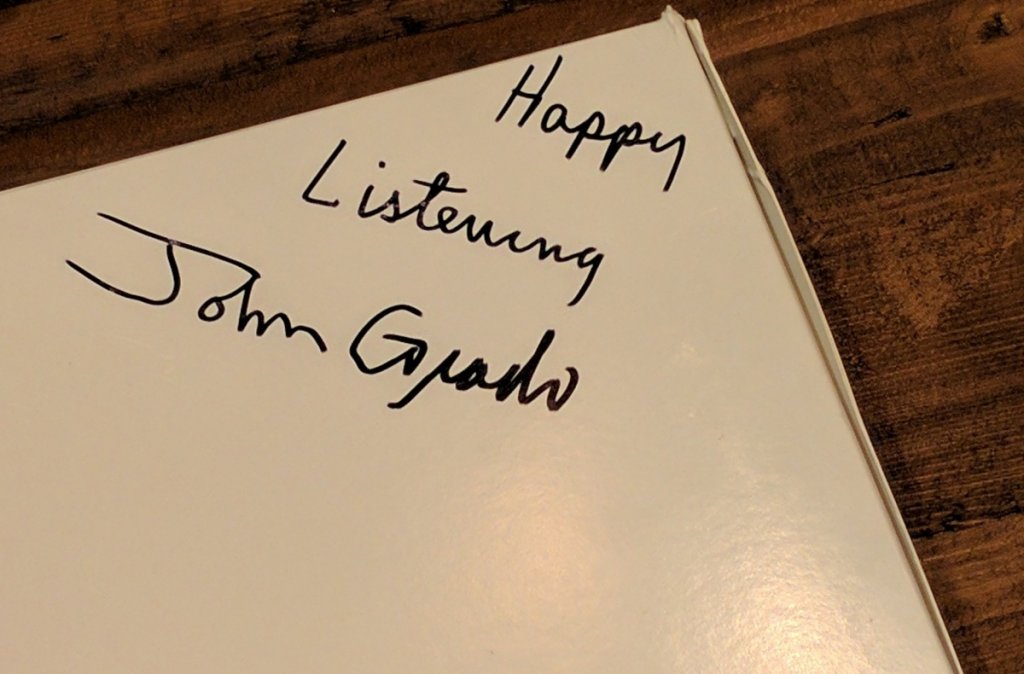 Happy
Listening
John Grado